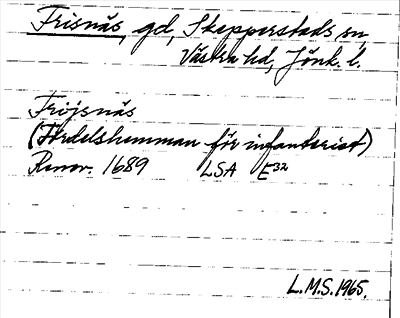 Frisnäs, gd, Skepperstads sn
Västra hd, Jönk. l.
Fröjsnäs
(Fördelshemman för infanterist)
Renov. 1689 LSA E32
L.M.S. 1965.